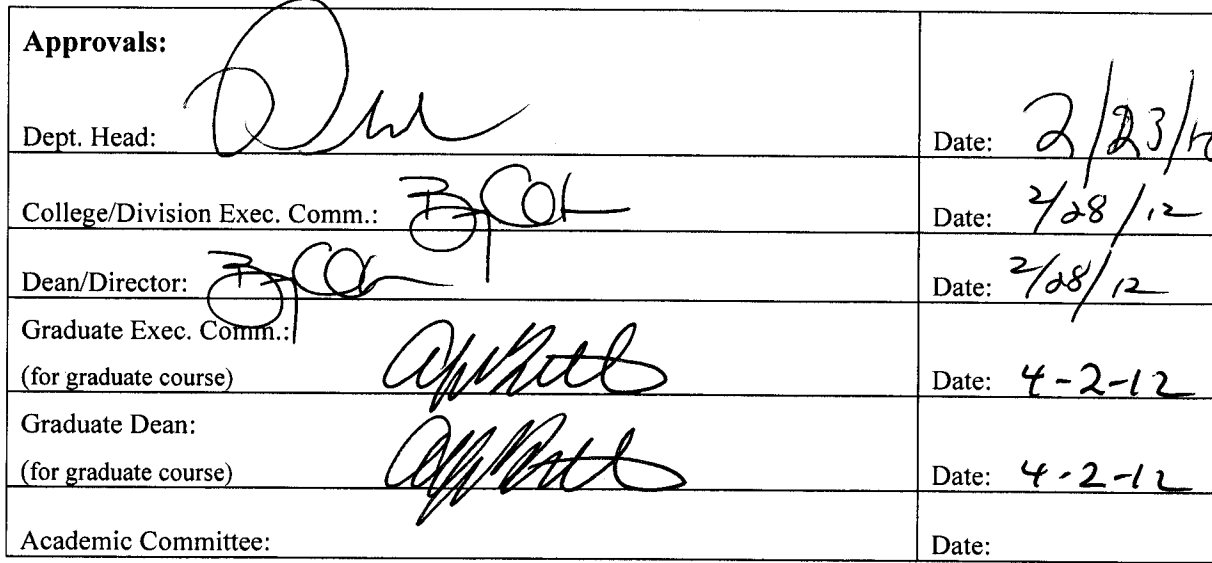 Approvals:
Dept. Head: Date: 2/23/12
College/Division Exec. Comm.: Date: 2/28/12
Dean/Director: Date: 2/28/12
Graduate Exec. Comm.:
(for graduate course) Date: 4-2-12
Graduate Dean:
(for graduate course) Date: 4-2-12
Academic Committee: Date: